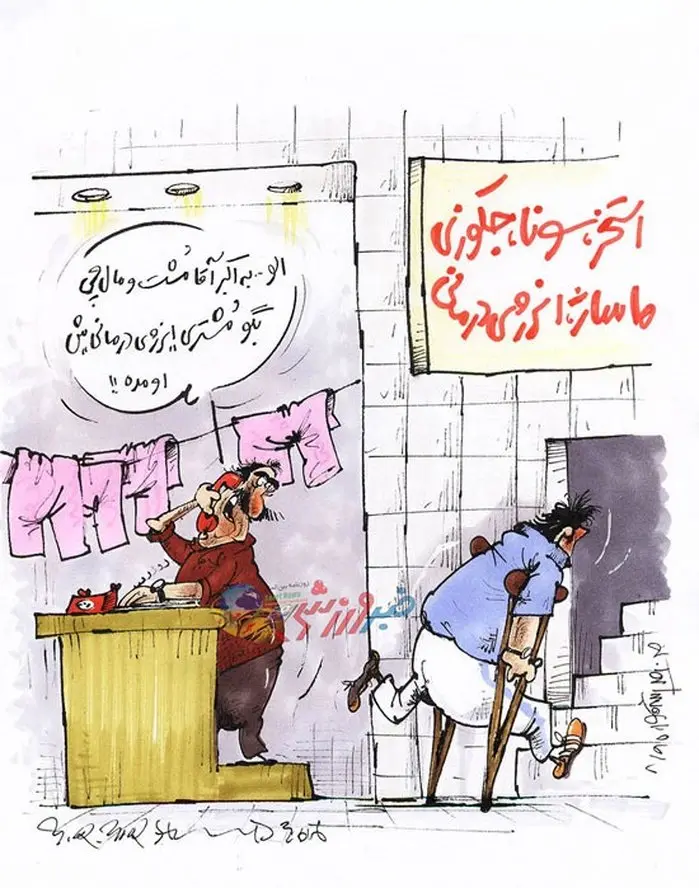 استخر، سونا، جکوزی
ماساژ، انرژی درمانی
الو... به اکبر آقا مُشت و مال چی
بگو مُشتری انرژی درمانی‌ش
اومده !!
خبرورزشی